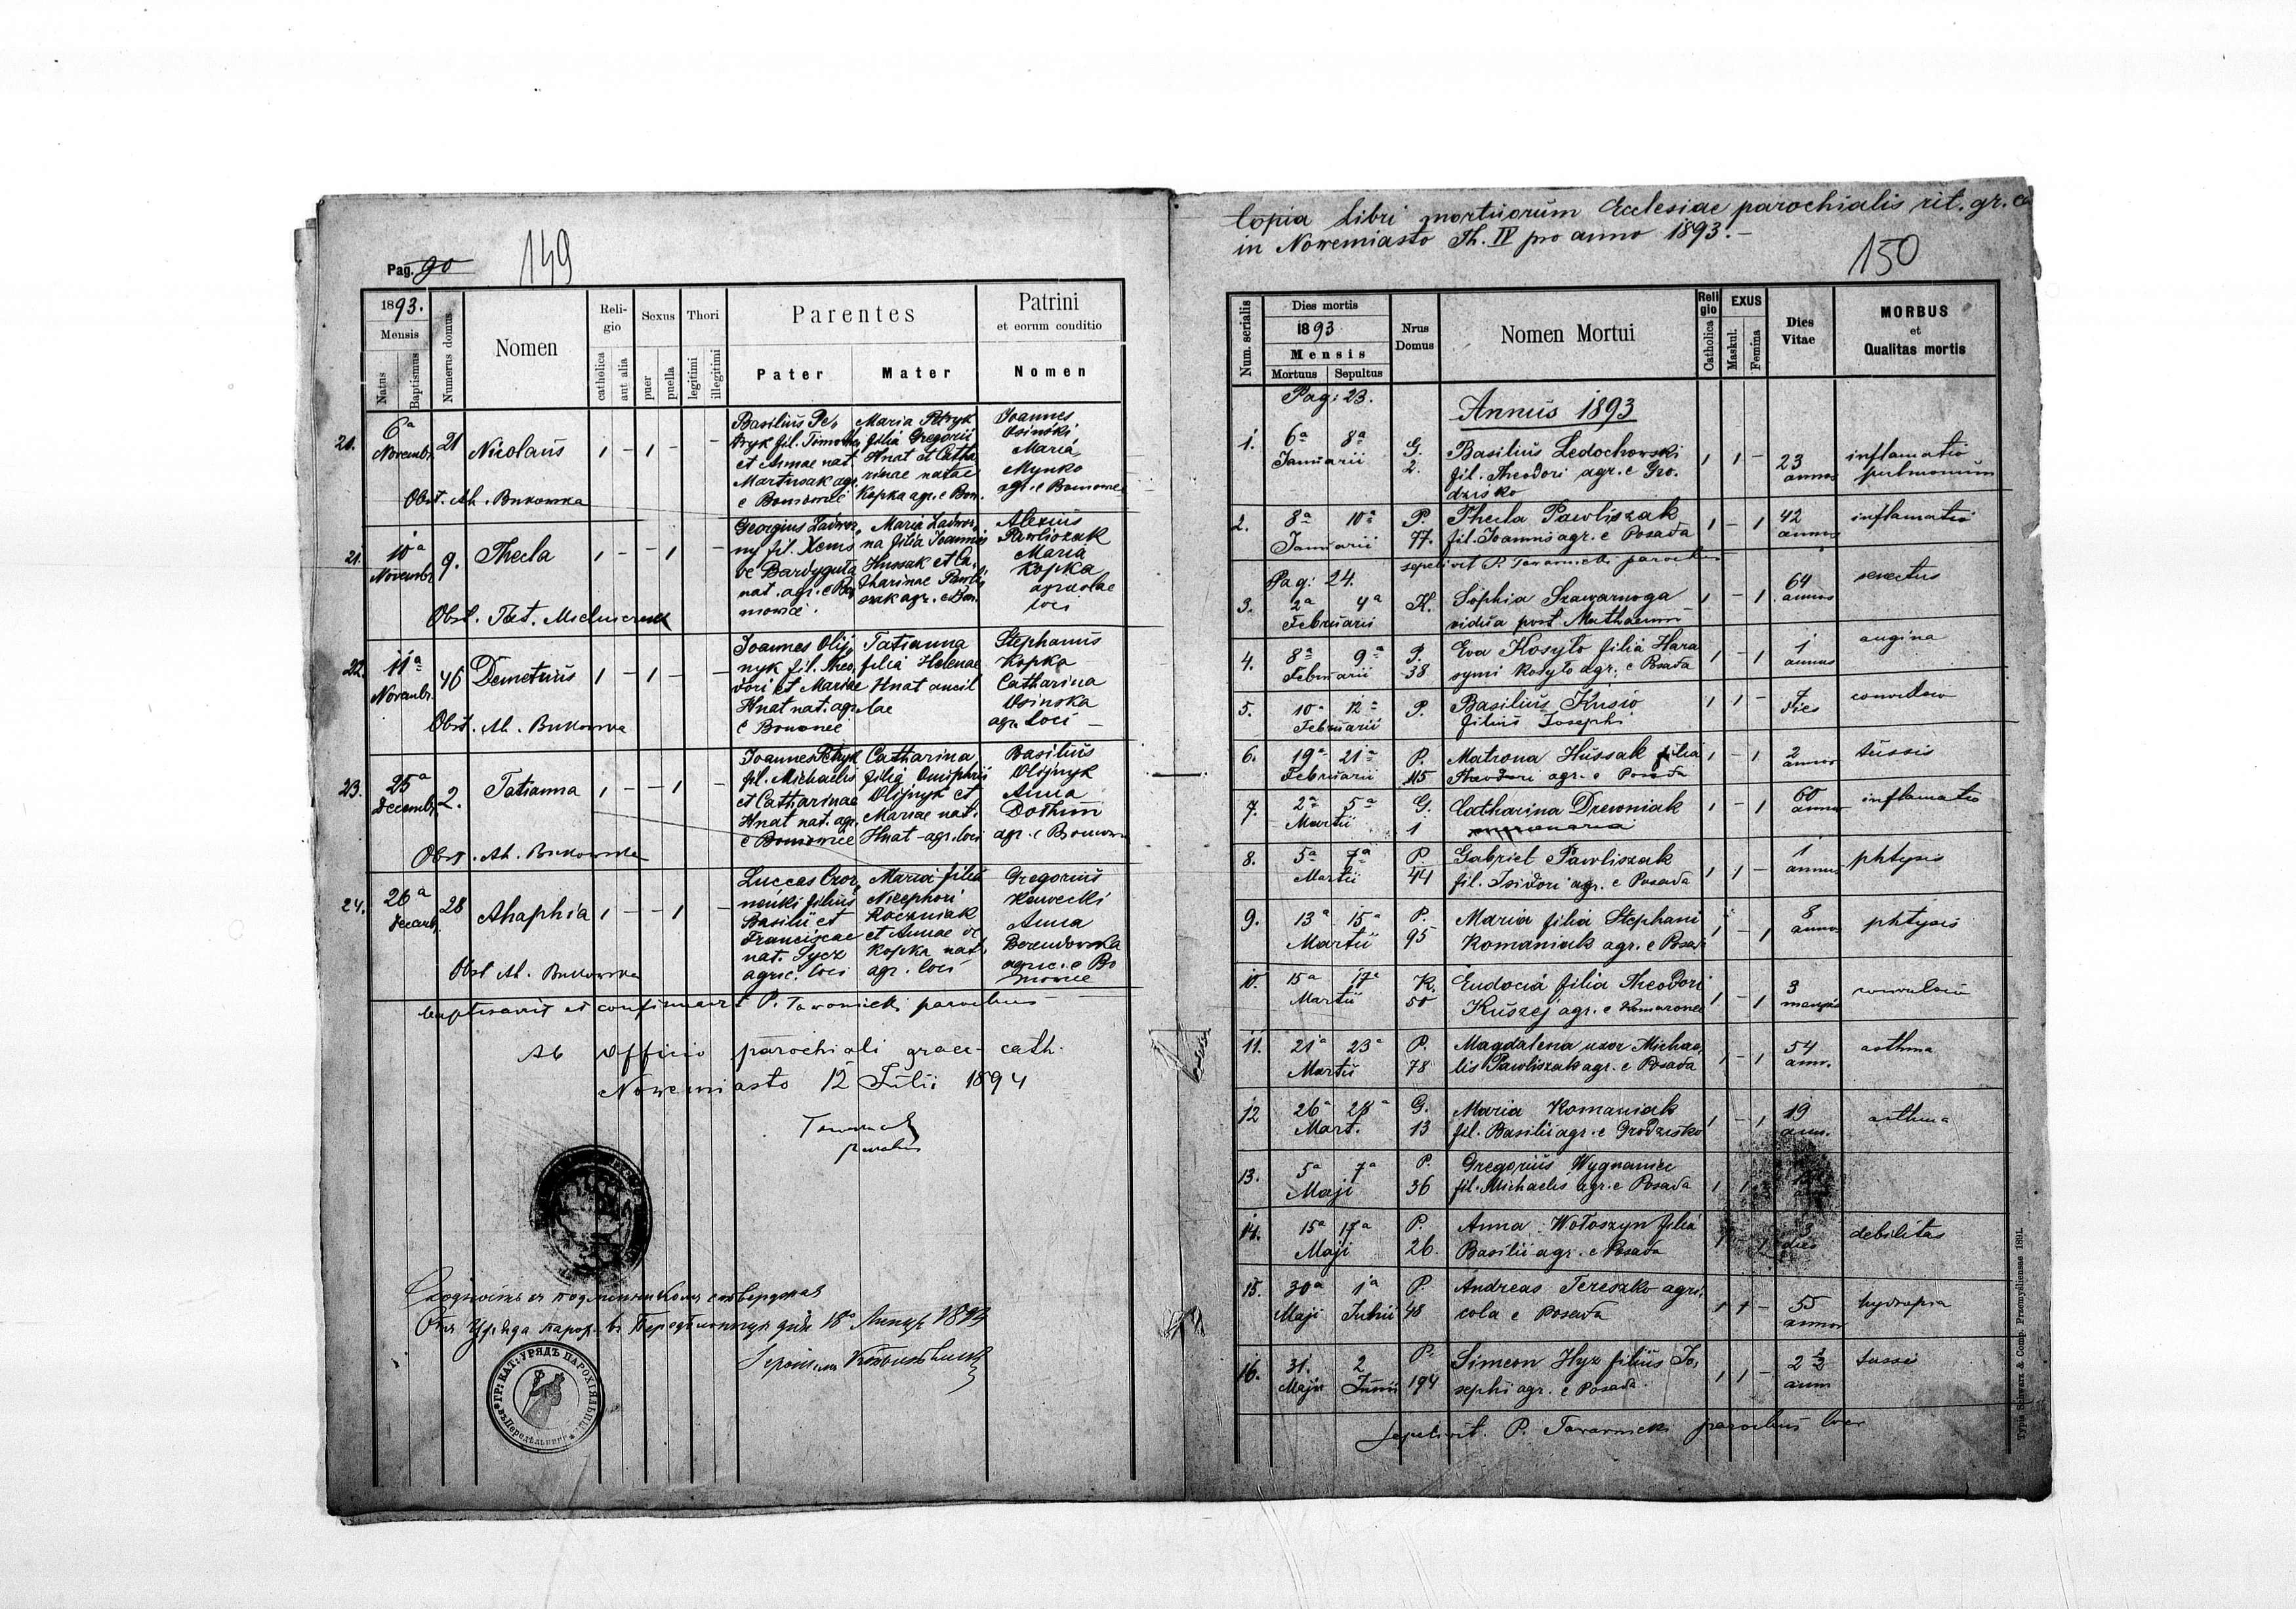 Pag. 90
149
1893.
Mensis
Natus
Baptismus
Numerus domus
Nomen
Religio
catholica
aut alia
Sexus
puer
puella
Thori
legitimi
illegitimi
Parentes
Pater
Mater
Patrini
et eorum conditio
Nomen
6a
Novembr.
21
Nicolaus
1 - 1 - -
Basilius Pe-
tryk fil. Timothei
et Annae nat.
Martusak agr.
e Bonowice
Maria Petryk
filia Gregorii
Hnat et Catha
rinae natae
Kopka agr. e Bon.
Joannes
Osinski
Maria
Mynko
agr. e Bonowice
Obst. Ah. Bukowska
21.
10a
Novembr.
9.
Thecla
1 - - 1 -
Georgius Zadwor-
ny fil. Xeniae
Bardyguła
nat. agr. e Bo
nowice.
Maria Zadwor-
na filia Joannis
Hussak et Ca-
tharinae Pawli
szak agr. e Bon.
Alexius
Pawliszak
Maria
Kopka
agricolae
loci
22.
11a
Novembr.
46
Demetrius
1 - 1 - -
Joannes Olij-
nyk fil. Theo-
dori et Mariae
Hnat nat. agr.
e Bonowice
Tatianna
filia Helenae
Hnat ancil
lae
Stephanus
Kopka
Catharina
Osinska
agr. loci
Obst. Ah. Bukowska
23.
25a
Decembr.
2.
Tatianna
1 - - 1 -
Joannes Petryk
fil. Michaelis
et Catharinae
Hnat nat. agr.
e Bonowice
Catharina
filia Onuphrii
Olijnyk et
Mariae nat.
Hnat agr. loci
Basilius
Olijnyk
Anna
Dothun
agr. e Bonowice
Obst. Ah. Bukowska
24.
26a
Decemb.
28
Ahaphia
1 - - 1 -
Luccas Czor-
nenki filius
Basilii et
Franciscae
nat. Sycz
agric. loci
Maria filia
Nicephori
Roczniak
et Annae de
Kopka nat.
agr. loci
Gregorius
Kawecki
Anna
Berendowska
agric. e Bo
nowice
Obst. Ah. Bukowska
baptisavit et confirmavit P. Tawarnicki parochus
Ab Officio parochiali graec. cath.
Nowemiasto 12 Julii 1894
Tawarnicki
parochus
ГР: КАТ: УРЯДЪ ПАРОХІЯЛЬН.
Copia Libri mortuorum Ecclesiae parochialis rit. gr. ca
in Nowemiasto Th. IV pro anno 1893. -
150
Num. serialis
Dies mortis
1893
Mensis
Mortuus
Sepultus
Nrus
Domus
Nomen Mortui
Religio
Catholica
EXUS
Maskul.
Femina
Dies
Vitae
MORBUS
et
Qualitas mortis
Pag: 23.
Annus 1893
1.
6a 8a
Januarii
G.
2.
Basilius Ledochowski
fil. Theodori agr. e Gro-
dzisko
1 1 -
23
annos
inflamatio
pulmonum
2.
8a 10a
Januarii
P.
77.
Thecla Pawliszak
fil. Joannis agr. e Posada
1 - 1
42
annos
inflamatio
sepelivit P. Tawarnicki parochus
Pag: 24.
3.
2a 4a
Februarii
K.
Sophia Szawarnoga
vidua post Mathaeum
1 - 1
64
annos
senectus
4.
8a 9a
Februarii
P.
38
Eva Kosyło filia Hara
symi Kosyło agr. e Posada
1 - 1
1
annus
angina
5.
10a 12a
Februarii
P.
Basilius Kusio
filius Josephi
1 1 -
7
dies
convulsio
6.
19a 21a
Februarii
P.
115
Matrona Hussak filia
Theodori agr. e Posada
1 - 1
2
annos
tussis
7.
2a 5a
Martii
G.
1
Catharina Drewniak
1 - 1
60
annos
inflamatio
8.
5a 7a
Martii
P.
44
Gabriel Pawliszak
fil. Isidori agr. e Posada
1 1 -
1
annus
phtysis
9.
13a 15a
Martii
P.
95
Maria filia Stephani
Romaniak agr. e Posad
1 - 1
8
annos
phtysis
10.
15a 17a
Martii
K.
50
Eudocia filia Theodori
Kuszej agr. e Komarowice
1 - 1
3
menses
convulsio
11.
21a 23a
Martii
P.
78
Magdalena uxor Michae-
lis Pawliszak agr. e Posada
1 - 1
54
ann.
asthma
12
26a 28a
Mart.
G.
13
Maria Romaniak
fil. Basilii agr. e Grodzisko
1 - 1
19
ann.
asthma
13.
5a 7a
Maji
P.
36
Gregorius Wygnaniec
fil. Michaelis agr. e Posada
1 1
14.
15a 17a
Maji
P.
26.
Anna Wołoszyn filia
Basilii agr. e Posada
1 - 1
3
dies
debilitas
15.
30a 1a
Maji Junii
P.
48
Andreas Tereszko agri-
cola e Posada
1 1 -
55
annos
hydropsia
16.
31. 2
Maji Junii
P.
194
Simeon Hyz filius Jo-
sephi agr. e Posada.
1 1 -
2 1/2
ann
tussis
Sepelivit. P. Tawarnicki parochus loci
Typis Schwarz & Comp. Przemysliensae 1891.